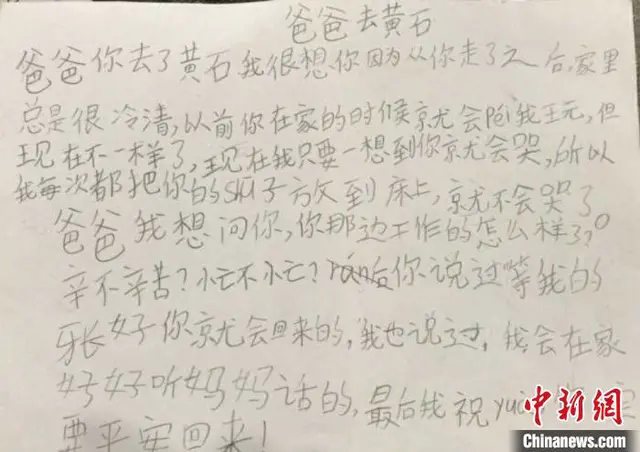 爸爸去黄石
爸爸你去了黄石我很想你因为从你走了之后,家里
总是很冷清,以前你在家的时候京尤会陪我王元,但
现在不一样了,现在我只要一想到你京尤会哭,所以
我每次都把你的shu子放到床上,京尤不会哭了
爸爸我想问你,你那边工作的怎么样了?
辛不辛苦?忙不忙?ránhòu你说过等我的
牙长好你京尤会回来的,我也说过,我会在家
好好听妈妈话的,最后我祝
要平安回来!
中新网
Chinanews.com